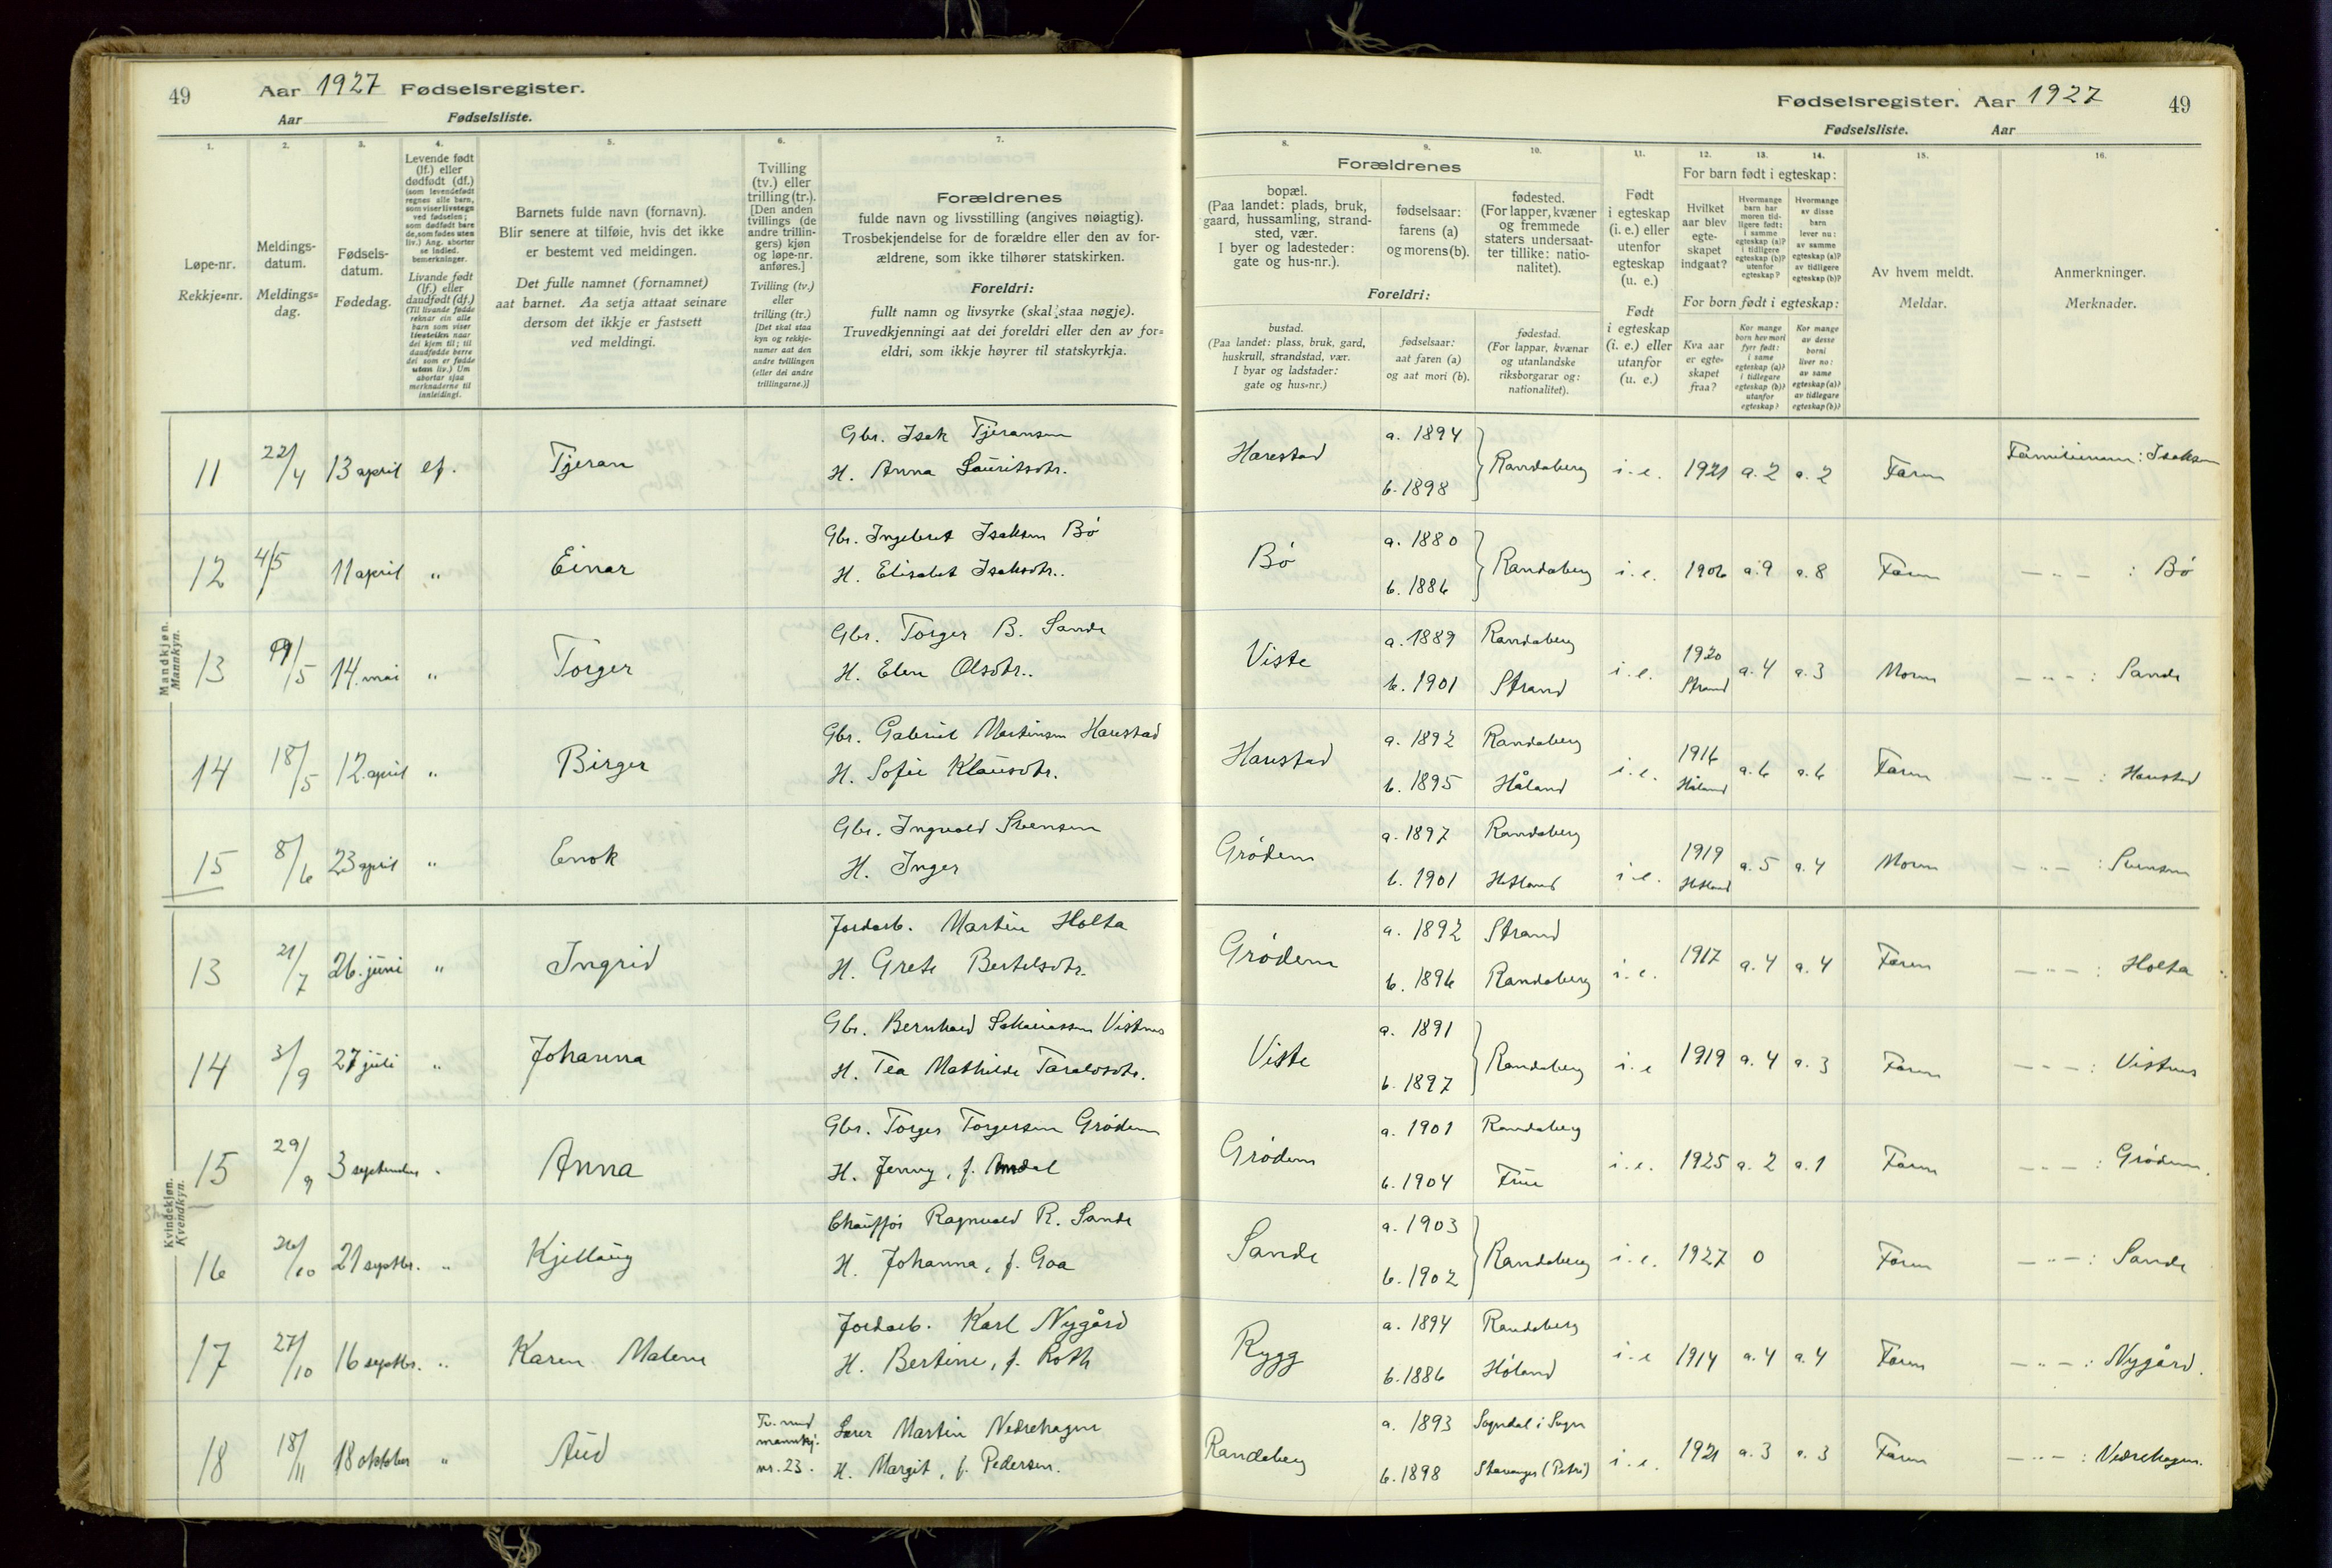 49 Aar 1927 Fødselsregister.
Aar Fødselsliste.
1. 2. 3. 4. 5. 6. 7.
Løpe-nr.
Rekkje=nr.
Meldings-
datum.
Meldings=
dag.
Fødsels-
datum.
Fødedag.
Levende født
(lf.) eller
dødfødt (df.)
(som levendefødt
regnes alle barn,
som viser livstegn
ved fødselen;
som dødfødt bare
de, som fødes uten
liv.) Ang. aborter
se indled.
bemerkninger.
Livande født
(lf.) eller
daudfødt (df.)
(Til livande fødde
reknar ein alle
barn som viser
livsteikn naar
dei kjem til; til
daudfødde berre
dei som er fødde
utan liv.) Um
abortar sjaa
merknaderne til
innleidingi.
Barnets fulde navn (fornavn).
Blir senere at tilføie, hvis det ikke
er bestemt ved meldingen.
Det fulle namnet (fornamnet)
aat barnet. Aa setja attaat seinare
dersom det ikkje er fastsett
ved meldingi.
Tvilling
(tv.) eller
trilling (tr.).
[Den anden
tvillings (de
andre trillin-
gers) kjøn
og løpe-nr.
anføres.]
Tvilling (tv.)
eller
trilling (tr.)
[Det skal staa
kyn og rekkje-
numer aat den
andre tvillingen
(eller dei andre
trillingarne.)]
Forældrenes
fulde navn og livsstilling (angives nøiagtig).
Trosbekjendelse for de forældre eller den av for-
ældrene, som ikke tilhører statskirken.
Foreldri:
fullt namn og livsyrke (skal staa nøgje).
Truvedkjenningi aat dei foreldri eller den av for=
eldri, som ikkje høyrer til statskyrkja.
Mandkjøn.
Mannkyn.
11 22/4 13 april lf. Tjeran
Gbr. Isak Tjeransen
H. Anna Lauritsdtr.
12 4/5 11 april " Einar
Gbr. Ingebret Isaksen Bø
H. Elisabet Isaksdtr.
13 19/5 14. mai " Torger
Gbr. Torger B. Sande
H. Elen Olsdtr.
14 18/5 12. april " Birger
Gbr. Gabriel Martinsen Harestad
H. Sofie Klausdtr.
15 8/6 23 april " Enok
Gbr. Ingvald Svensen
H. Inger
Kvindekjøn.
Kvendkyn.
13 21/7 26. juni " Ingrid
Jordarb. Martin Holta
H. Grete Bertelsdtr.
14 3/9 27 juli " Johanna
Gbr. Bernhard Sakariassen Vistnes
H. Tea Mathilde Taraldsdtr.
15 29/9 3 september " Anna
Gbr. Torger Torgersen Grødem
H. Jenny, f.
16 26/10 21 septbr. " Kjellaug
Chauffør Ragnvald R. Sande
H. Johanna, f. Goa
17 27/10 16 septbr. " Karen Malene
Jordarb. Karl Nygård
H. Bertine, f. Roth
18 18/11 18 oktober " Aud
Tv. med
mannkj.
nr. 23.
Lærer Martin Nedrehagen
H. Margit, f. Pedersen.
Fødselsregister. Aar 1927 49
Fødselsliste. Aar
8. 9. 10. 11. 12. 13. 14. 15. 16.
Forældrenes
bopæl.
(Paa landet: plads, bruk,
gaard, hussamling, strand-
sted, vær.
I byer og ladesteder:
gate og hus-nr.).
fødselsaar:
farens (a)
og morens (b).
fødested.
(For lapper, kvæner
og fremmede
staters undersaat-
ter tillike: natio-
nalitet).
Foreldri:
bustad.
(Paa landet: plass, bruk, gard,
huskrull, strandstad, vær.
I byar og ladstader:
gate og hus=nr.)
fødselsaar:
aat faren (a)
og aat mori (b).
fødestad.
(For lappar, kvænar
og utanlandske
riksborgarar og:
nationalitet).
Født
i egteskap
(i. e.) eller
utenfor
egteskap
(u. e.)
Født
i egteskap
(i. e.) eller
utanfor
(u. e.)
For barn født i egteskap:
Hvilket
aar blev
egte-
skapet
indgaat?
Hvormange
barn har
moren tid-
ligere født:
i samme
egteskap (a)?
i tidligere
egteskap (b)?
utenfor
egteskap?
Hvormange
av disse
barn
lever nu:
av samme
egteskap (a)?
av tidligere
egteskap (b)?
For born født i egteskap:
Kva aar
er egte=
skapet
fraa?
Kor mange
born hev mori
fyrr født:
i same
egteskap (a)?
i tidlegare
egteskap (b)?
utanfor
egteskap?
Kor mange
av desse
borni
liver no:
av same
egteskap (a)?
av tidlegare
egteskap (b)?
Av hvem meldt.
Meldar.
Anmerkninger.
Merknader.
Harestad a. 1894 b. 1898 Randaberg i. e. 1921 a. 2 a. 2 Faren Familienavn: Isaksen
Bø a. 1880 b. 1886 Randaberg i. e. 1906 a. 9 a. 8 Faren — " — : Bø
Viste a. 1889 Randaberg
b. 1901 Strand i. e. 1920 Strand a. 4 a. 3 Moren — " — : Sande
Harestad a. 1892 Randaberg
b. 1895 Håland i. e. 1916 Håland a. 6 a. 6 Faren — " — : Harestad
Grødem a. 1897 Randaberg
b. 1901 Hetland i. e. 1919 Hetland a. 5 a. 4 Moren — " — : Svensen
Grødem a. 1892 Strand
b. 1896 Randaberg i. e. 1917 a. 4 a. 4 Faren — " — : Holta
Viste a. 1891 b. 1897 Randaberg i. e 1919 a. 4 a. 3 Faren — " — : Vistnes
Grødem a. 1901 Randaberg
b. 1904 i. e. 1925 a. 2 a. 1 Faren — " — : Grødem.
Sande a. 1903 b. 1902 Randaberg i. e. 1927 0 Faren — " — : Sande
Rygg a. 1894 Randaberg
b. 1886 Håland i. e 1914 a. 4 a. 4 Faren — " — : Nygård.
Randaberg a. 1893 Sogndal i Sogn
b. 1898 Stavanger (Petri) i. e. 1921 a. 3 a. 3 Faren — " — : Nedrehagen.